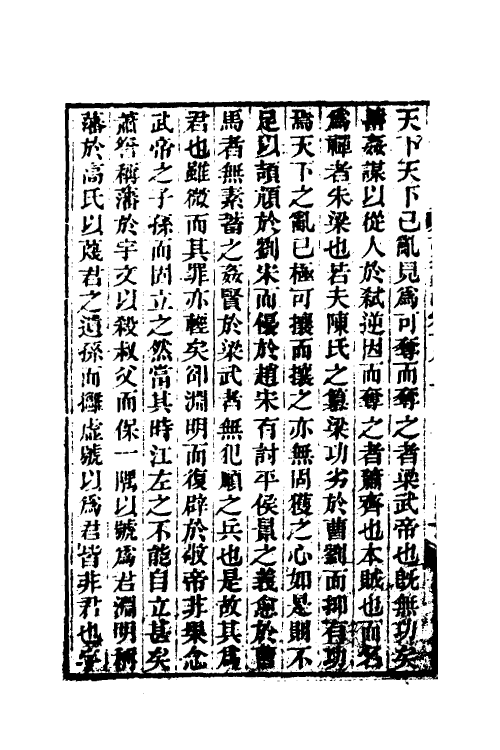 天下天下已亂見為可奪而奪之者梁武帝也旣無功矣
姦謀以從人於弑逆因而奪之者蕭齊也本賊也而名
爲禪者朱梁也若夫陳氏之簒梁功劣於曹劉而抑有功
焉天下之亂已極可攘而攘之亦無固獲之心如是則不
足以頡頏於劉宋而優於趙宋有討平侯景之義愈於曹
馬者無素蓄之姦賢於梁武者無犯順之兵也是故其爲
君也雖微而其罪亦輕矣卻淵明而復辟於敬帝非果念
武帝之子孫而固立之然當其時江左之不能自立甚矣
蕭詧稱藩於宇文以殺叔父而保一隅以號爲君淵明稱
藩於高氏以蔑君之遺孫而擁虛號以爲君皆非君也